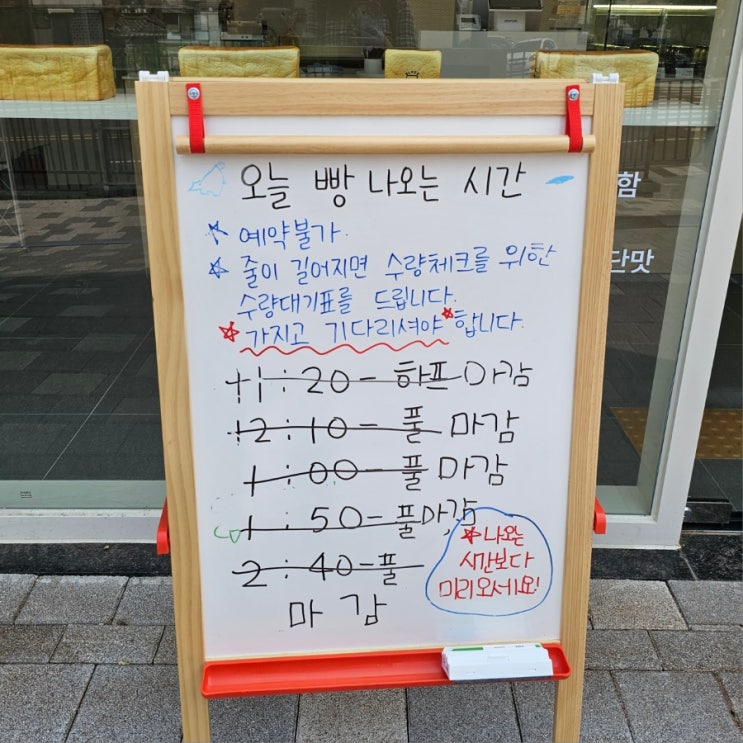 오늘 빵 나오는 시간
예약불가.
줄이 길어지면 수량체크를 위한
수량대기표를 드립니다.
가지고 기다리셔야 합니다.
11:20 - 하프 마감
12:10 - 풀 마감
1:00 - 풀 마감
1:50 - 풀 마감
2:40 - 풀
마 감
나오는
시간보다
미리오세요!
함
단맛